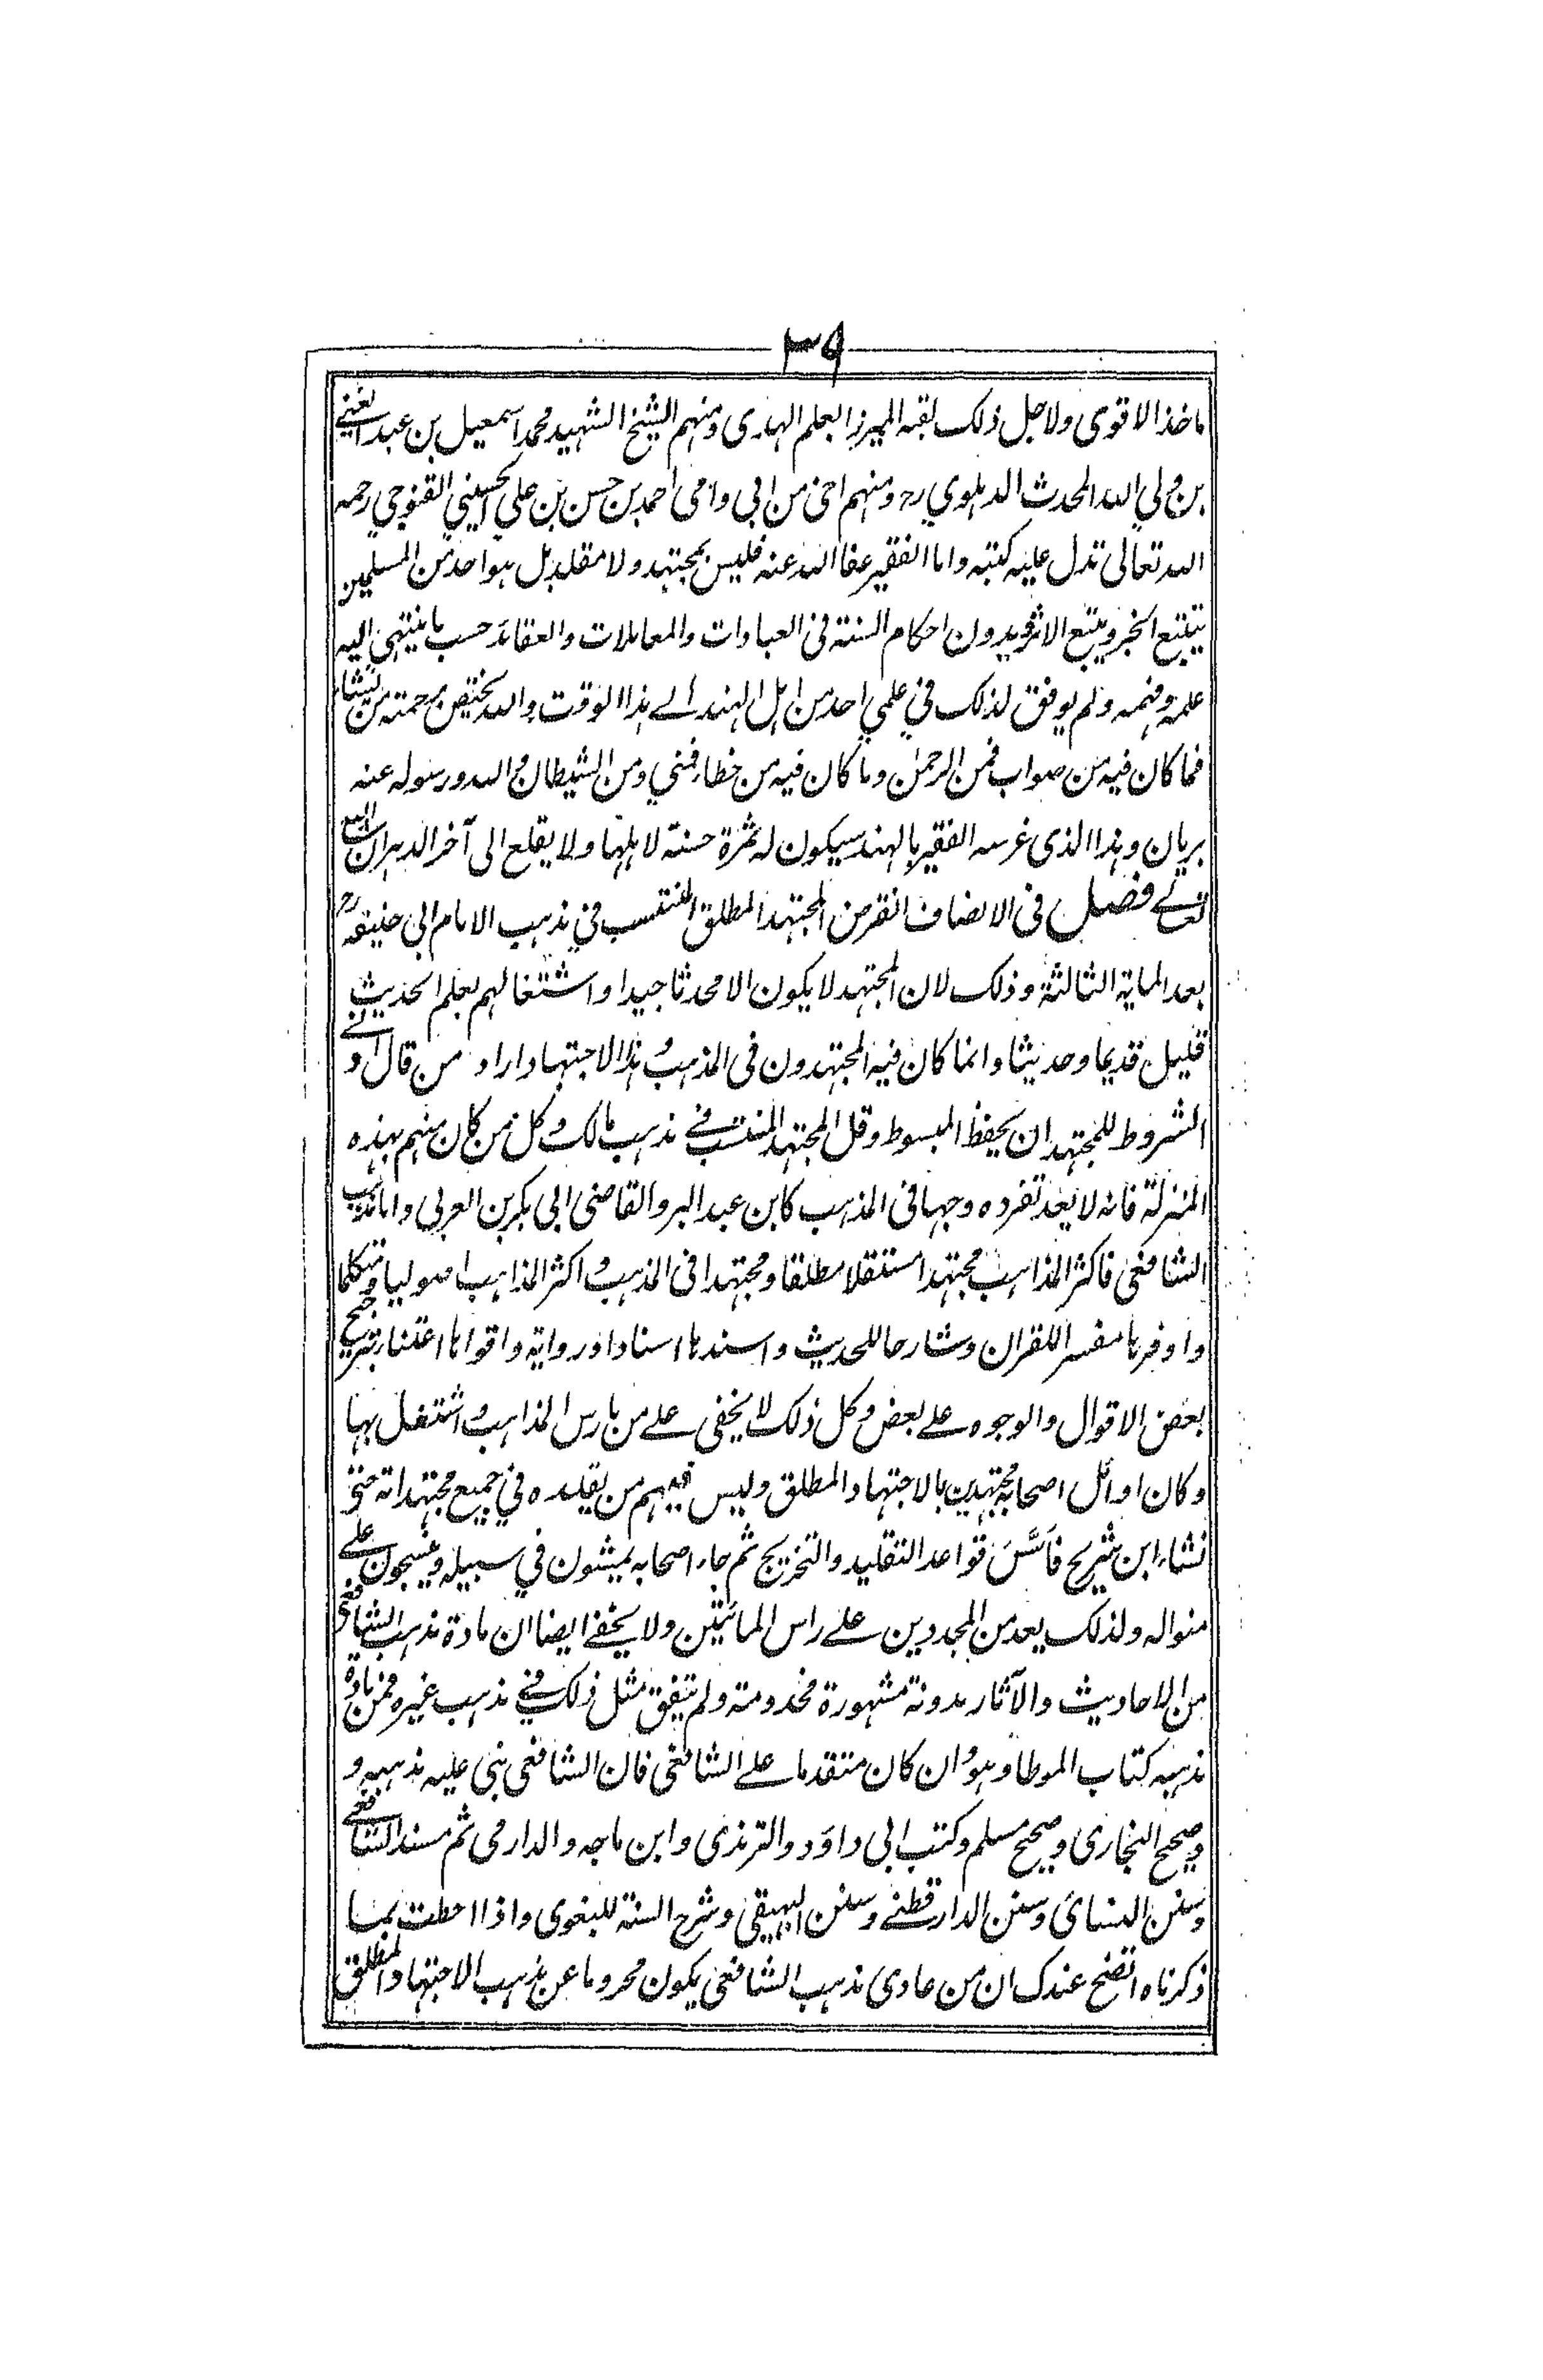 ٣٩
ماخذ الاقوى ولاجل ذلك لقبه الميرزا بعلم الهدى ومنهم الشيخ الشهيد محمد اسمعيل بن عبد الغني
بن ولي الله المحدث الدهلوي رح ومنهم اخى من ابى وامى احمد بن حسن بن علي الحسيني القنوجي رحمه
الله تعالى تدل عليه كتبه واما الفقير عفا الله عنه فليس بمجتهد ولا مقلد بل هو احد من المسلمين
يتتبع الخبر ويتبع الاثر ويدون احكام السنة فى العبادات والمعاملات والعقائد حسب ما ينتهى اليه
علمه وفهمه ولم يوفق لذلك في علمي احد من اهل الهند الے هذا الوقت والله يختص برحمته من يشاء
فما كان فيه من صواب فمن الرحمن وما كان فيه من خطاء فمني ومن الشيطان والله ورسوله عنه
بريان وهذا الذى غرسه الفقير بالهند سيكون له ثمرة حسنة لاهلها ولا يقلع الى آخر الدهر ان شاء الله
تعالے فصل فى الانصاف انقرض المجتهد المطلق المنتسب في مذهب الامام ابى حنيفة رح
بعد الماية الثالثة وذلك لان المجتهد لا يكون الا محدثا جيدا واشتغالهم بعلم الحديث
قليل قديما وحديثا وانما كان فيه المجتهدون فى المذهب وهذا الاجتهاد اراد من قال ادنے
الشروط للمجتهد ان يحفظ المبسوط وقل المجتهد المنتسب فے مذهب مالك وكل من كان منهم بهذه
المنزلة فانه لا يعد تفرده وجها فى المذهب كابن عبد البر والقاضى ابى بكر بن العربى واما مذهب
الشافعى فاكثر المذاهب مجتهدا مستقلا مطلقا ومجتهدا فى المذهب واكثر المذاهب اصوليا ومتكلما
واوفرها مفسرا للقران وشارحا للحديث واسندها اسنادا ورواية واقواها اعتناء بترجيح
بعض الاقوال والوجوه علے بعض وكل ذلك لا يخفى علے من مارس المذاهب واشتغل بها
وكان اوائل اصحابه مجتهدين بالاجتهاد المطلق وليس فيهم من يقلده في جميع مجتهداته حتى
نشاء ابن شريح فاَسَّسَ قواعد التقليد والتخريج ثم جاء اصحابه يمشون في سبيله وينسجون علے
منواله ولذلك يعد من المجددين علے راس المائتين ولا يخفے ايضا ان مادة مذهب الشافعى
من الاحاديث والآثار مدونة مشهورة مخدومة ولم يتفق مثل ذلك فے مذهب غيره فمن مادة
مذهبه كتاب الموطا وهو وان كان متقدما علے الشافعى فان الشافعى بنى عليه مذهبه و
وصحيح البخارى وصحيح مسلم وكتب ابى داؤد والترمذى وابن ماجه والدارمى ثم مسند الشافعے
وسنن النسائ وسنن الدارقطنے وسنن البيهقى وشرح السنة للبغوى واذا احطت بما
ذكرناه اتضح عندك ان من عادى مذهب الشافعى يكون محروما عن مذهب الاجتهاد المطلق